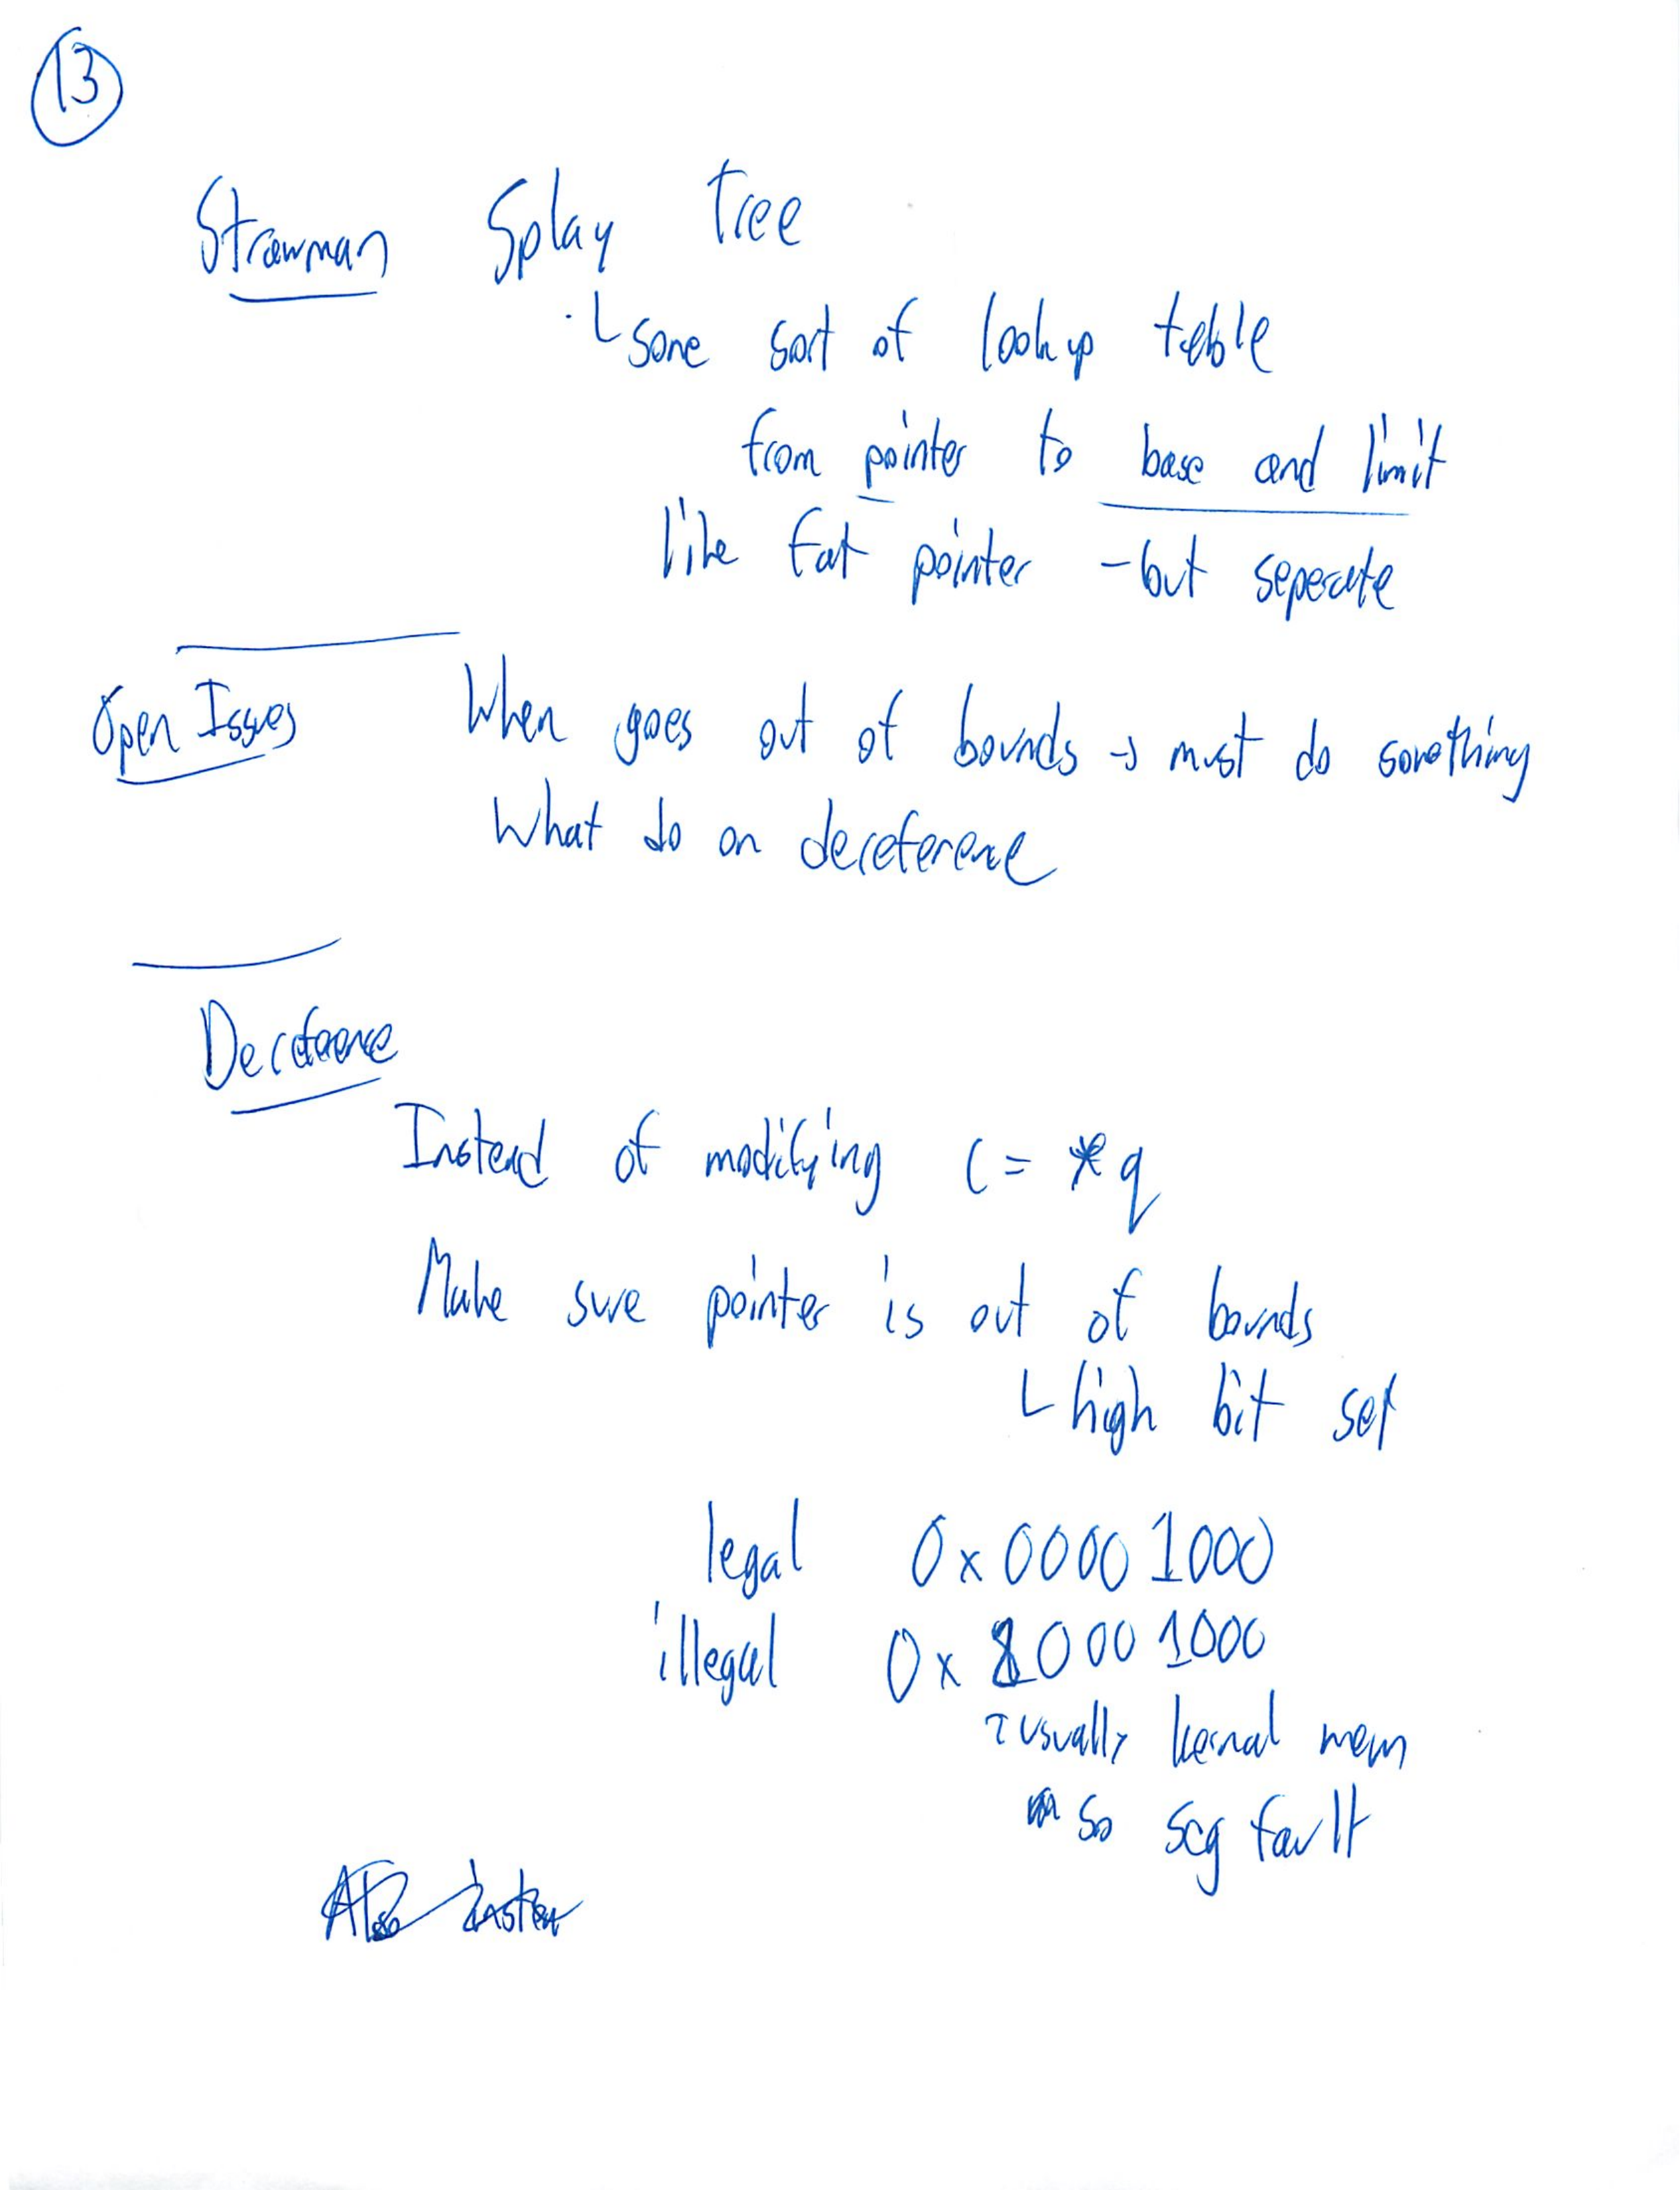 13
Strawman Splay Tree
some sort of lookup table
from pointer to base and limit
like fat pointer - but seperate
Open Issues When goes out of bounds → must do something
What do on dereference
Dereference
Instead of modifying c = *q
Make sure pointer is out of bounds
high bit set
legal 0x0000 1000
illegal 0x8000 1000
↑ usually kernal mem
so seg fault